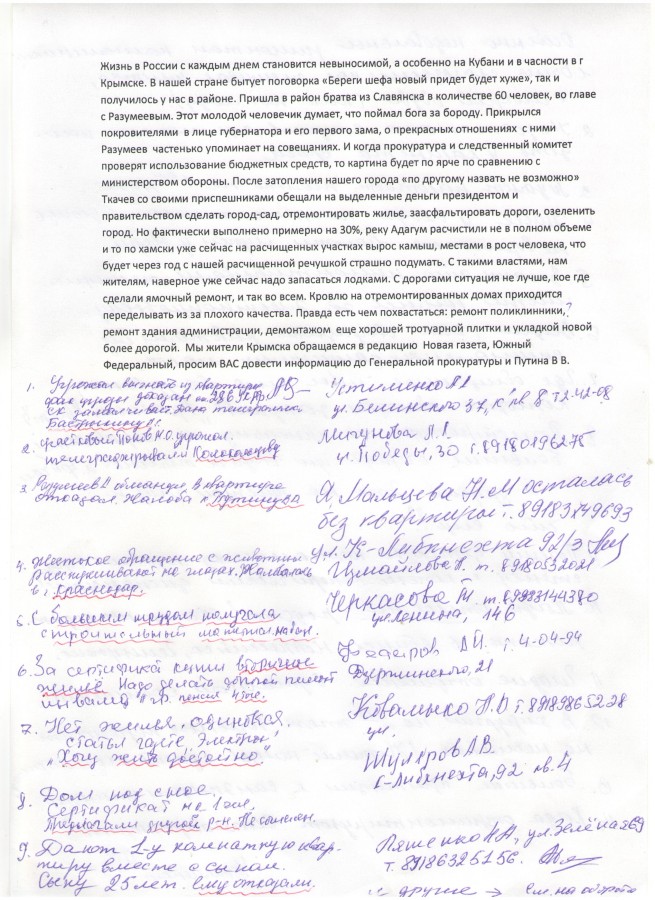 Жизнь в России с каждым днем становится невыносимой, а особенно на Кубани и в часности в г
Крымске. В нашей стране бытует поговорка «Береги шефа новый придет будет хуже», так и
получилось у нас в районе. Пришла в район братва из Славянска в количестве 60 человек, во главе
с Разумеевым. Этот молодой человечик думает, что поймал бога за бороду. Прикрылся
покровителями в лице губернатора и его первого зама, о прекрасных отношениях с ними
Разумеев частенько упоминает на совещаниях. И когда прокуратура и следственный комитет
проверят использование бюджетных средств, то картина будет по ярче по сравнению с
министерством обороны. После затопления нашего города «по другому назвать не возможно»
Ткачев со своими приспешниками обещали на выделенные деньги президентом и
правительством сделать город-сад, отремонтировать жилье, заасфальтировать дороги, озеленить
город. Но фактически выполнено примерно на 30%, реку Адагум расчистили не в полном объеме
и то по хамски уже сейчас на расчищенных участках вырос камыш, местами в рост человека, что
будет через год с нашей расчищенной речушкой страшно подумать. С такими властями, нам
жителям, наверное уже сейчас надо запасаться лодками. С дорогами ситуация не лучше, кое где
сделали ямочный ремонт, и так во всем. Кровлю на отремонтированных домах приходится
переделывать из за плохого качества. Правда есть чем похвастаться: ремонт поликлинники,?
ремонт здания администрации, демонтажом еще хорошей тротуарной плитки и укладкой новой
более дорогой. Мы жители Крымска обращаемся в редакцию Новая газета, Южный
Федеральный, просим ВАС довести информацию до Генеральной прокуратуры и Путина В В.
1. из квартиры Устименко
ул. Белинского 37, т 2-42-08
Бастрыкину
2. участковый Липунова Л.
телеграфировали ул. Победы, 30 т. 89180196275
3. обманул, в квартире Я, Мальцева Н.М осталась
отказал. Жалоба к без квартиры т. 89183749693
ул. К-Либкнехта 92/3
4. Жестокое обращение с животными Измайлова т. 8918
на глазах. в г. Краснодар.
5. С большим трудом получала Черкасова т. 8
строительный материал ул Ленина, 146
т. 4-04-94
6. За сертификат купил вторичное Дзержинского, 21
жильё Надо делать ремонт
инвалид II гр. пенсия
7. Нет жилья. одинокая. Коваленко т. 89189865228
статья газете Электрон
"Хочу жить достойно" Шуляров А.В.
К-Либкнехта, 92 кв. 4
8. Дом под снос.
Сертификат на
другой р-н. Не
9. Дают 1-у комнатную квар- Ляшенко ул. Зелёная 69
тиру вместе с сыном. т. 89186325156.
Сыну 25 лет. Ему отказали.
и другие → См. на обороте